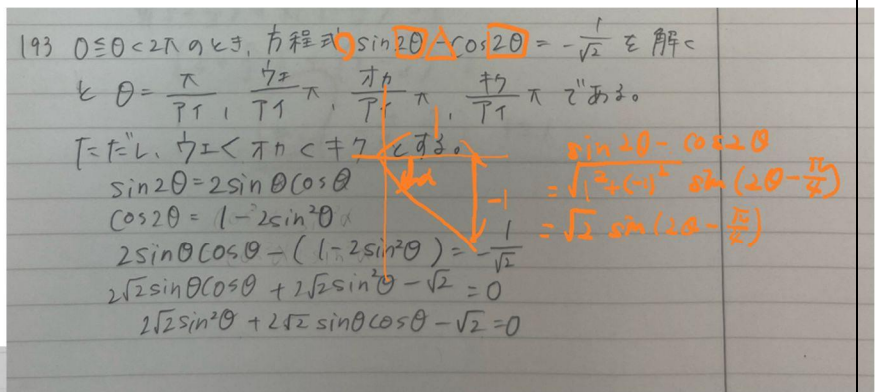 193 0≦θ<2πのとき、方程式 sin2θ-cos2θ = -1/√2 を解く
と θ= π/アイ, ウエ/アイ π, オカ/アイ π, キク/アイ π である。
ただし、ウエ<オカ<キク とする。
sin2θ=2sinθcosθ
cos2θ= 1-2sin²θ
2sinθcosθ-(1-2sin²θ)=-1/√2
2√2sinθcosθ+2√2sin²θ-√2=0
2√2sin²θ+2√2sinθcosθ-√2=0
1
-1
sin2θ-cos2θ
=√1²+(-1)² sin(2θ-π/4)
=√2 sin(2θ-π/4)